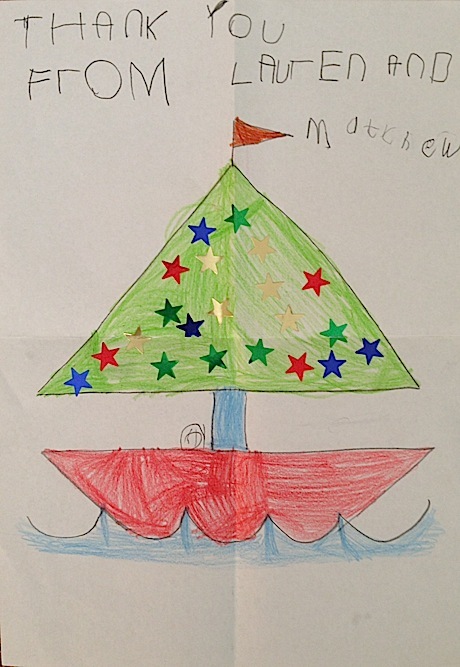 THANK YOU
FrOM LAUrEN AND
Matthew